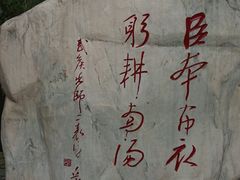 臣本布衣
躬耕南阳
武侯出师二表句